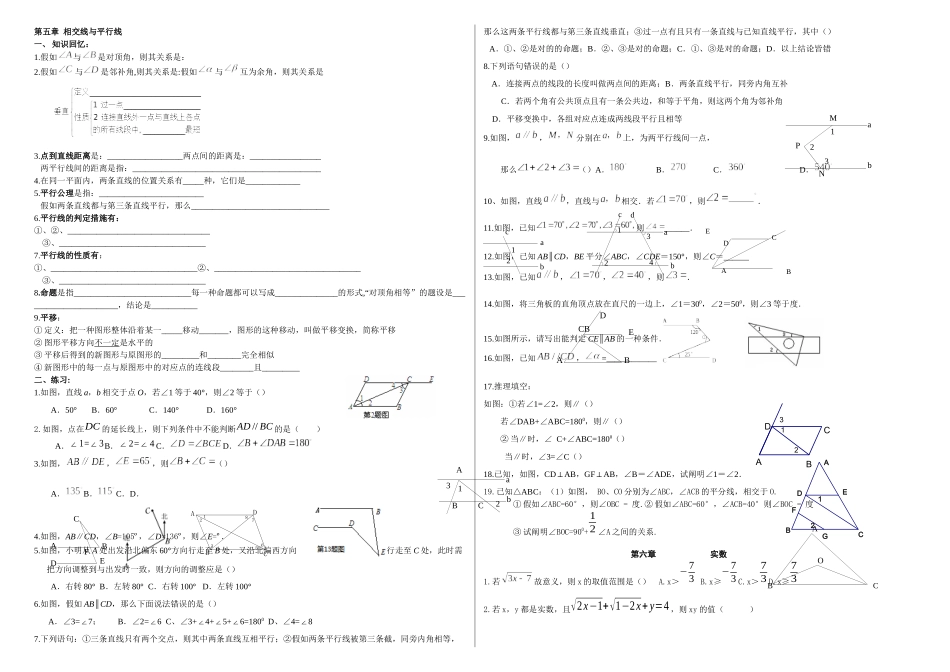 第五章 相交线与平行线
一、 知识回忆:
1.假如∠A与∠B是对顶角，则其关系是:
2.假如∠C与∠D是邻补角,则其关系是:假如∠α与∠β互为余角，则其关系是
垂直
定义
性质
1 过一点
2 连接直线外一点与直线上各点
的所有线段中. 最短
3.点到直线距离是： 两点间的距离是：
两平行线间的距离是指：
4.在同一平面内，两条直线的位置关系有 种，它们是
5.平行公理是指：
假如两条直线都与第三条直线平行，那么
6.平行线的判定措施有:
①、②、
③、
7.平行线的性质有:
①、 ②、
③、
8.命题是指 每一种命题都可以写成 的形式,“对顶角相等”的题设是
，结论是
9.平移:
① 定义：把一种图形整体沿着某一 移动 ，图形的这种移动，叫做平移变换，简称平移
② 图形平移方向不一定是水平的
③ 平移后得到的新图形与原图形的 和 完全相似
④ 新图形中的每一点与原图形中的对应点的连线段 且
二、练习:
1.如图，直线 a，b 相交于点 O，若∠1 等于 40°，则∠2 等于（）
A．50° B．60° C．140° D．160°
D C E
A B
第2题图
2. 如图，点在DC的延长线上，则下列条件中不能判断AD//BC的是（ ）
A．∠1=∠3 B．∠2=∠4 C．∠D=∠BCE D．∠B+∠DAB=180
3.如图， AB∥DE，∠E=65，则∠B+∠C=（）
A．135 B．115 C． D．
4.如图，AB∥CD，∠B=105°，∠D=136°，则∠E=°．
第13题图
5.如图，小明从 A 处出发沿北偏东 60°方向行走至 B 处，又沿北偏西方向 行走至 C 处，此时需
把方向调整到与出发时一致，则方向的调整应是（）
A．右转 80° B．左转 80° C．右转 100° D．左转 100°
6.如图，假如 AB∥CD，那么下面说法错误的是（）
A．∠3=∠7； B．∠2=∠6 C、∠3+∠4+∠5+∠6=180⁰ D、∠4=∠8
7.下列语句：①三条直线只有两个交点，则其中两条直线互相平行；②假如两条平行线被第三条截，同旁内角相等，
那么这两条平行线都与第三条直线垂直；③过一点有且只有一条直线与已知直线平行，其中（）
A．①、②是对的的命题；B．②、③是对的命题；C．①、③是对的命题；D．以上结论皆错
8.下列语句错误的是（）
A．连接两点的线段的长度叫做两点间的距离；B．两条直线平行，同旁内角互补
C．若两个角有公共顶点且有一条公共边，和等于平角，则这两个角为邻补角
D．平移变换中，各组对应点连成两线段平行且相等
9.如图，a∥b，M，N 分别在a，b上，为两平行线间一点，
那么∠1+∠2+∠3=（）A．180 B．270 C．360 D．540
10、如图，直线a∥b，直线与a，b相交．若∠1=70，则∠2= ．
11.如图，已知∠1=70°，∠2=70°，∠3=60°，则∠4= ．
12.如图，已知 AB∥CD，BE 平分∠ABC，∠CDE＝150°，则∠C＝
13.如图，已知a∥b，∠1=70，∠2=40，则∠3= ．
14.如图，将三角板的直角顶点放在直尺的一边上，∠1＝30⁰，∠2＝50⁰，则∠3 等于度．
15.如图所示，请写出能判定 CE∥AB 的一种条件．
16.如图，已知AB//CD，∠α=
17.推理填空:
如图：①若∠1=∠2，则∥（）
若∠DAB+∠ABC=180⁰，则∥（）
② 当∥时，∠ C+∠ABC=180⁰（）
当∥时，∠3=∠C（）
18.已知，如图，CD⊥AB，GF⊥AB，∠B＝∠ADE，试阐明∠1＝∠2．
19.已知△ABC：（1）如图， BO、CO 分别为∠ABC，∠ACB 的平分线，相交于 O．
① 假如∠ABC=60° ，则∠OBC = 度.② 假如∠ABC=60°，∠ACB=40° 则∠BOC = 度
③试阐明∠BOC=90⁰+1/2∠A 之间的关系.
第六章 实数
1. 若√3x－7故意义，则 x 的取值范围是（） A.x＞-7/3 B.x≥-7/3 C.x＞7/3 D.x≥7/3
2. 若 x，y 都是实数，且√2x−1+√1−2x+y=4，则 xy 的值（ ）